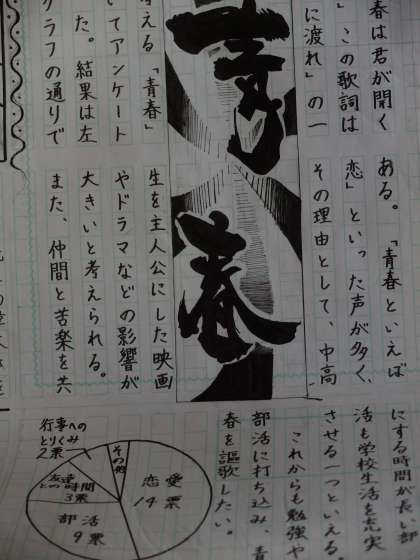 青春
春は君が開く
」この歌詞は
に渡れ」の一
える「青春」
いてアンケート
た。結果は左
グラフの通りで
ある。「青春といえば
恋」といった声が多く、
その理由として、中高
生を主人公にした映画
やドラマなどの影響が
大きいと考えられる。
また、仲間と苦楽を共
にする時間が長い部
活も学校生活を充実
させる一つといえる
これからも勉強や
部活に打ち込み、青
春を謳歌したい。
恋愛
14票
部活
9票
友達
との時間
3票
行事への
とりくみ
2票
その他